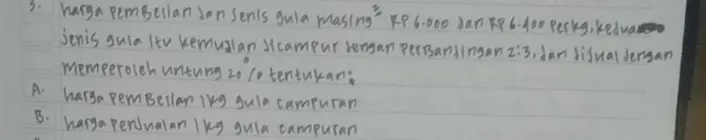 3. harga pembelian dan jenis gula masing² Rp 6.000 dan Rp 6.400 perkg, kedua
jenis gula itu kemudian dicampur dengan perbandingan 2:3, dan dijual dengan
memperoleh untung 20% tentukan:
A. harga pembelian 1kg gula campuran
B. harga penjualan 1kg gula campuran